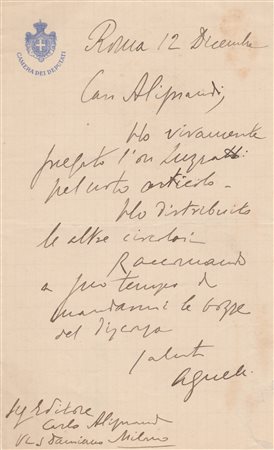 CAMERA DEI DEPUTATI
Roma 12 Dicembre
Caro Aliprandi,
Ho vivamente
pregato l'on Luzzatti
pel noto articolo.
Ho distribuito
le altre circolari
Raccomando
a suo tempo di
mandarmi le bozze
del discorso
saluti
Sig Editore
Carlo Aliprandi
Via S Damiano Milano